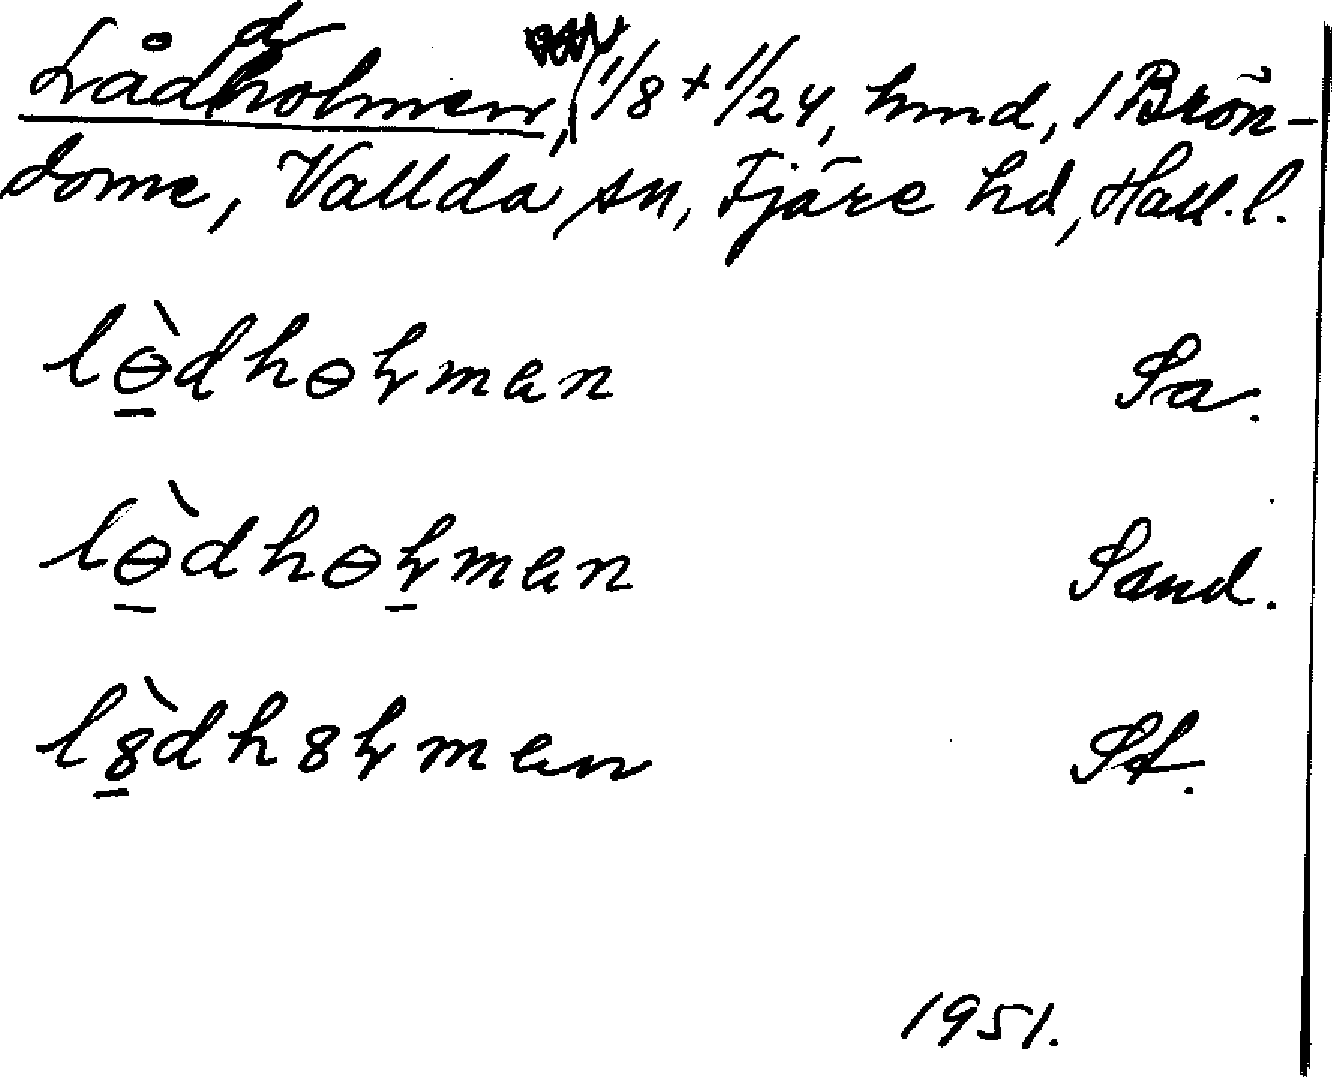 Låddholmen, 1/8 + 1/24, hmd, 1 Brön-
dome, Vallda sn, Fjäre hd, Hall. l.
lɵ̱̀dhɵɽman Sa.
lɵ̱̀dhɵɽ̱man Sand.
l8̱̀dh8ɽman St.
1951.